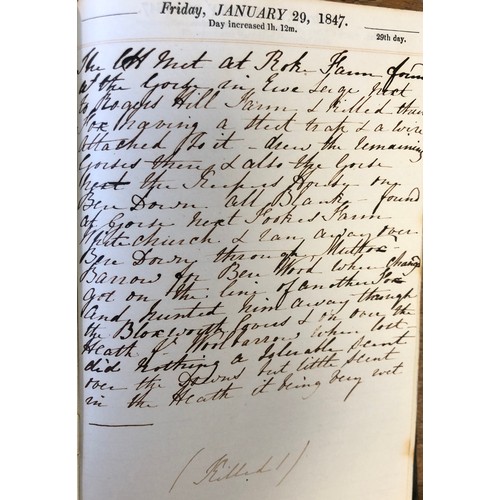 Friday, JANUARY 29, 1847.
Day increased 1h. 12m.
29th day.
The CH Met at Roke Farm found
at the Gorse in Ewe Leaze next
to Rogers Hill Farm & killed this
Fox having a steel trap & a wire
attached to it - drew the remaining
Gorses there & also the Gorse
next the Keepers House on
Bere Down all Blank - found
at Gorse next Fookes Farm
Whitchurch & ran away over
Bere Down through
Barrow for Bere Wood when changed
got on the line of another Fox
and hunted him away through
the Bloxworth & on over the
Heath for Woolbarrow when lost
did nothing a tolerable scent
over the Downs but little scent
in the Heath it being very wet
(Killed 1)